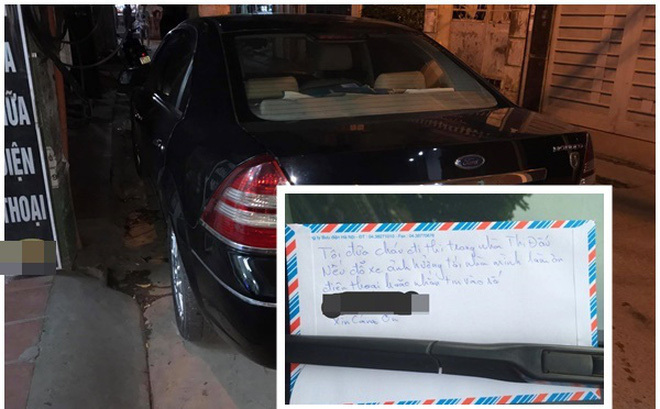 ỮA
IỆN
THOẠI
Ford
Tôi đưa cháu đi thi trong nhà Thi Đấu
Nếu đỗ xe ảnh hưởng tới nhà mình làm ơn
điện thoại hoặc nhắn tin vào số
Xin Cảm Ơn